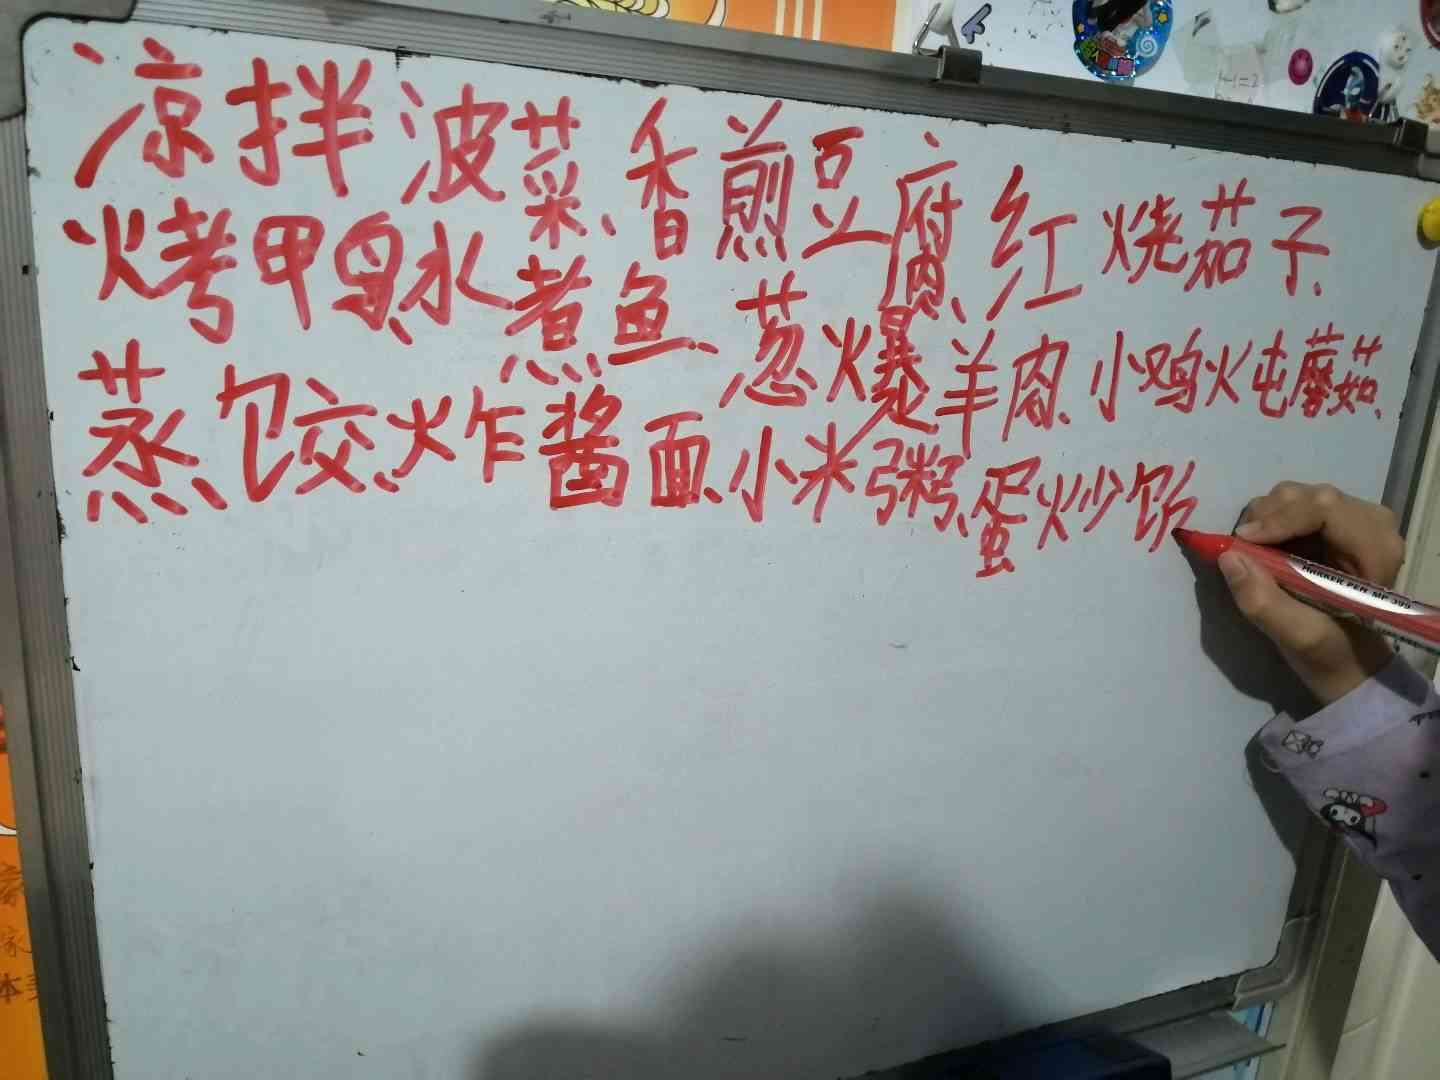 凉拌波菜、香煎豆腐、红烧茄子、
烤鸭、水煮鱼、葱爆羊肉、小鸡炖蘑菇、
蒸饺、炸酱面、小米粥、蛋炒饭
MARKER PEN MP-399
1+1=2